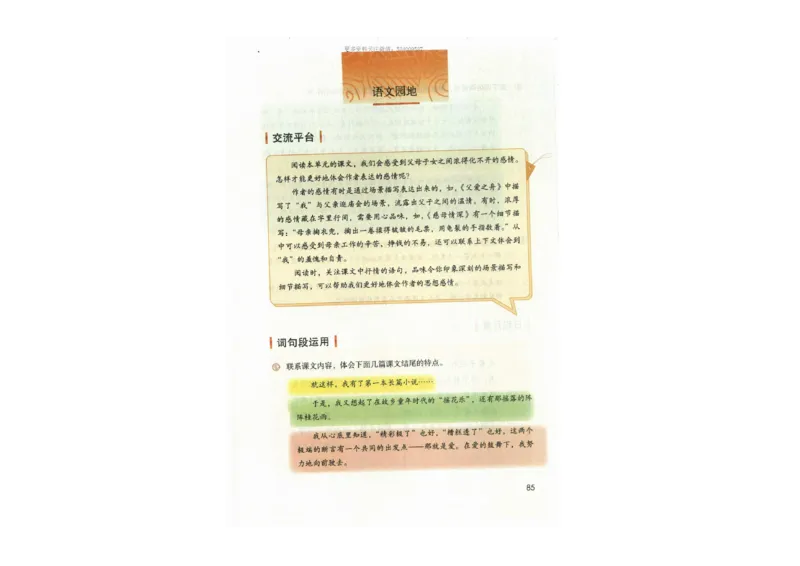 语文园地
交流平台
阅读本单元的课文，我们会感受到父母子女之间浓得化不开的感情。
怎样才能更好地体会作者表达的感情呢？
作者的感情有时是通过场景描写表达出来的，如，《父爱之舟》中描
写了“我”与父亲逛庙会的场景，流露出父子之间的温情，有时，浓厚
的感情藏在字里行间，需要用心品味，如，《慈母情深》有一个细节描
写：“母亲掏衣兜，掏出一卷揉得皱皱的毛票，用龟裂的手指数着。”从
中可以感受到母亲工作的辛苦，挣钱的不易，还可以联系上下文体会到
“我”的羞愧和自责。
阅读时，关注课文中抒情的语句，品味令你印象深刻的场景描写和
细节描写，可以帮助我们更好地体会作者的思想感情。
词句段运用
联系课文内容，体会下面几篇课文结尾的特点。
就这样，我有了第一本长篇小说……
于是，我又想起了在故乡童年时代的“摇花乐”，还有那摇落的阵
阵桂花雨。
我从心底里知道，“精彩极了”也好，“糟糕透了”也好，这两个
极端的断言有一个共同的出发点——那就是爱。在爱的鼓舞下，我努
力地向前驶去。
85